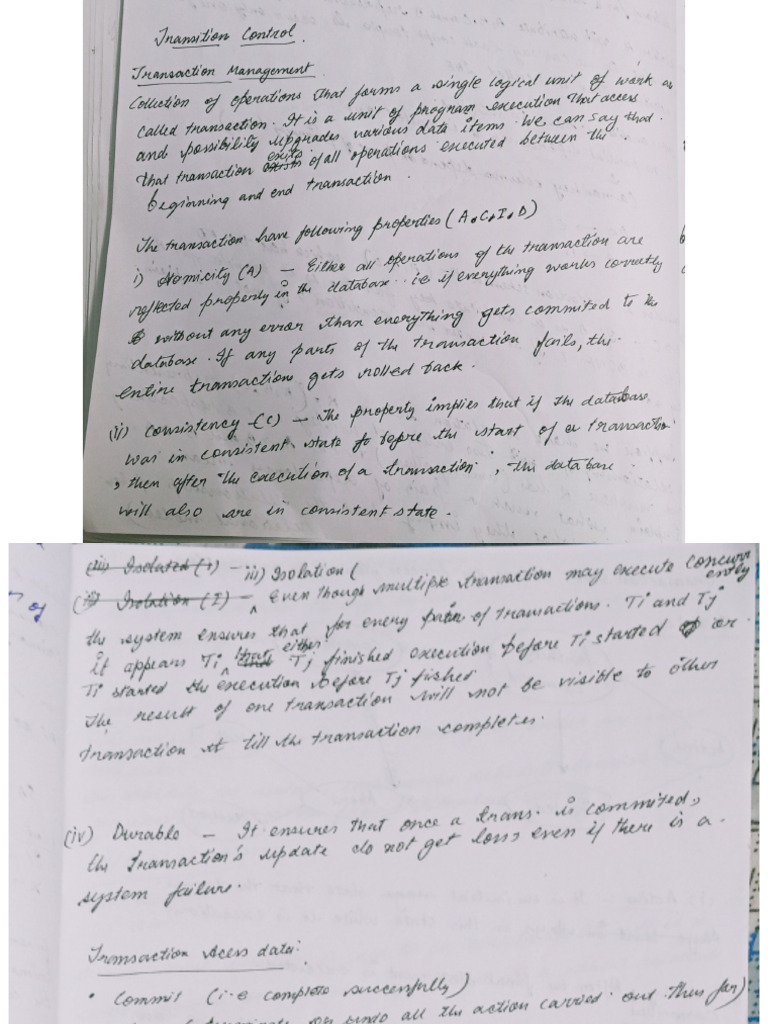 Transition Control.
Transaction Management.
Collection of operations that forms a single logical unit of work is
called transaction. It is a unit of program execution that access
and possibility upgrades various data items. We can say that
that transaction exists of all operations executed between the
beginning and end transaction.
The transaction have following properties (A.C.I.D)
i) Atomicity (A) — Either all operations of the transaction are
reflected properly in the database. i.e if everything works correctly
without any error than everything gets commited to the
database. If any parts of the transaction fails, the
entire transaction gets rolled back.
(ii) Consistency – (C) — The property implies that if the database
was in consistent state before the start of a transaction
, then after the execution of a transaction, the database
will also are in consistent state.
(iii) Isolated (I) – iii) Isolation (
(ii) Isolation (I) – Even though multiple transaction may execute concurrently
the system ensures that for every pair of transactions. Ti and Tj
it appears Ti that either Tj finished execution before Ti started or
Ti started the execution before Tj fished
The result of one transaction will not be visible to other
transaction till the transaction completes.
of
(iv) Durable — It ensures that once a trans. is commited,
the transaction's update do not get loss even if there is a
system failure.
Transaction Acess data:
• Commit (i.e complete successfully)
undo all the action carried out thus far)